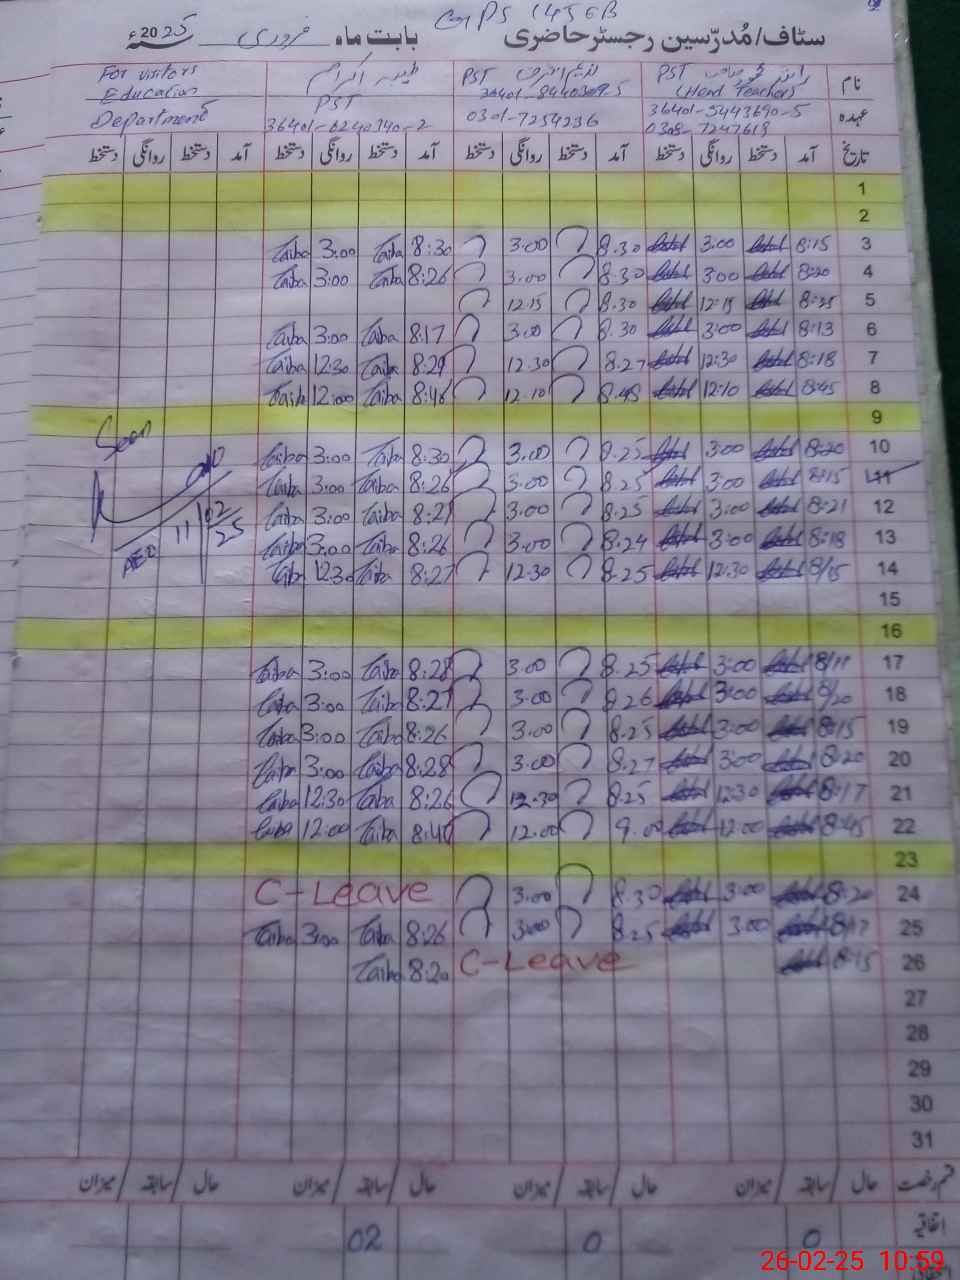 GMPS 145 EB
سٹاف/مُدرّسین رجسٹر حاضری بابت ماہ فروری سنہ 2025ء
نام PST (Head Teacher) PST طیبہ اکرم For visitors Education
عہدہ 36401-5443690-5 36401-8440309-5 PST Department
0308-7247618 0301-7254236 36401-6240340-2
تاریخ آمد دستخط روانگی دستخط آمد دستخط روانگی دستخط آمد دستخط روانگی دستخط آمد دستخط روانگی دستخط
1
2
3 8:15 3:00 8.30 3.00 8:30 Taiba 3:00 Taiba
4 8:20 3:00 8.30 3.00 8:26 Taiba 3:00 Taiba
5 8:25 12:15 8.30 12.15
6 8:13 3:00 8.30 3.00 8:17 Taiba 3:00 Taiba
7 8:18 12:30 8.27 12.30 8:29 Taiba 12:30 Taiba
8 8:45 12:10 8.48 12.10 8:46 Taiba 12:00 Taiba
9
10 8:20 3:00 8.25 3.00 8:30 Taiba 3:00 Taiba Seen
11 8:15 3:00 8.25 3.00 8:26 Taiba 3:00 Taiba
12 8:21 3:00 8.25 3.00 8:27 Taiba 3:00 Taiba 11/02/25
13 8:18 3:00 8.24 3.00 8:26 Taiba 3:00 Taiba AEO
14 8/15 12:30 8.25 12.30 8:27 Taiba 12:30 Taiba
15
16
17 8/11 3:00 8.25 3.00 8:28 Taiba 3:00 Taiba
18 8/20 3:00 8.26 3.00 8:27 Taiba 3:00 Taiba
19 8:15 3:00 8.25 3.00 8:26 Taiba 3:00 Taiba
20 8:20 3:00 8.27 3.00 8:28 Taiba 3:00 Taiba
21 8:17 12:30 8.25 12.30 8:26 Taiba 12:30 Taiba
22 8:45 12:00 9.00 12.00 8:40 Taiba 12:00 Taiba
23
24 8:20 3:00 8.30 3.00 C-Leave
25 8:17 3:00 8.25 3.00 8:26 Taiba 3:00 Taiba
26 8:15 C-Leave 8:20 Taiba
27
28
29
30
31
قسم رخصت حال سابقہ میزان حال سابقہ میزان حال سابقہ میزان حال سابقہ میزان
اتفاقیہ 0 0 02
26-02-25 10:59